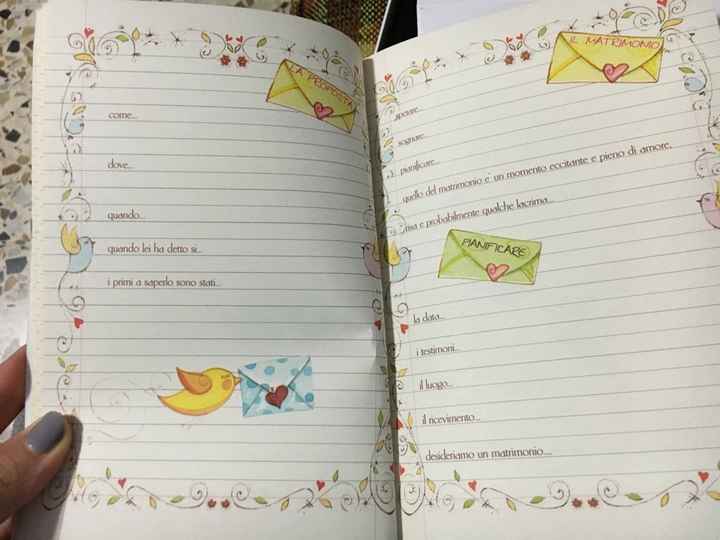 LA PROPOSTA
come...
dove...
quando...
quando lei ha detto si...
i primi a saperlo sono stati...
IL MATRIMONIO
sperare...
sognare...
pianificare...
quello del matrimonio e' un momento eccitante e pieno di amore,
risa e probabilmente qualche lacrima...
PIANIFICARE
la data...
i testimoni...
il luogo...
il ricevimento...
desideriamo un matrimonio....